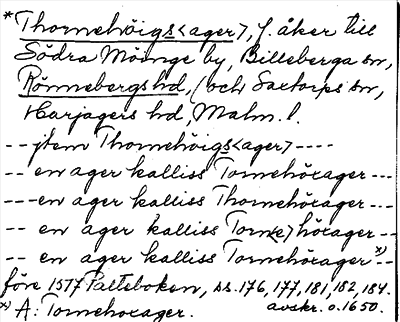 *Thornehöigs<ager>, f. åker till
Södra Möinge by, Billeberga sn,
Rönnebergs hd, (och Saxtorps sn,
Harjagers hd, Malm. l.
-- jtem Thornehöigs<ager> ----
-- en ager kalliss Tornehörager ---
---en ager kalliss Thornehörager ---
-- en ager kalliss Torn<e>hörager --
-- en ager kalliss Tornehörager x)--
före 1577 Palteboken, ss. 176, 177, 181, 182, 184.
x) A: Tornehorager. avskr. o. 1650.